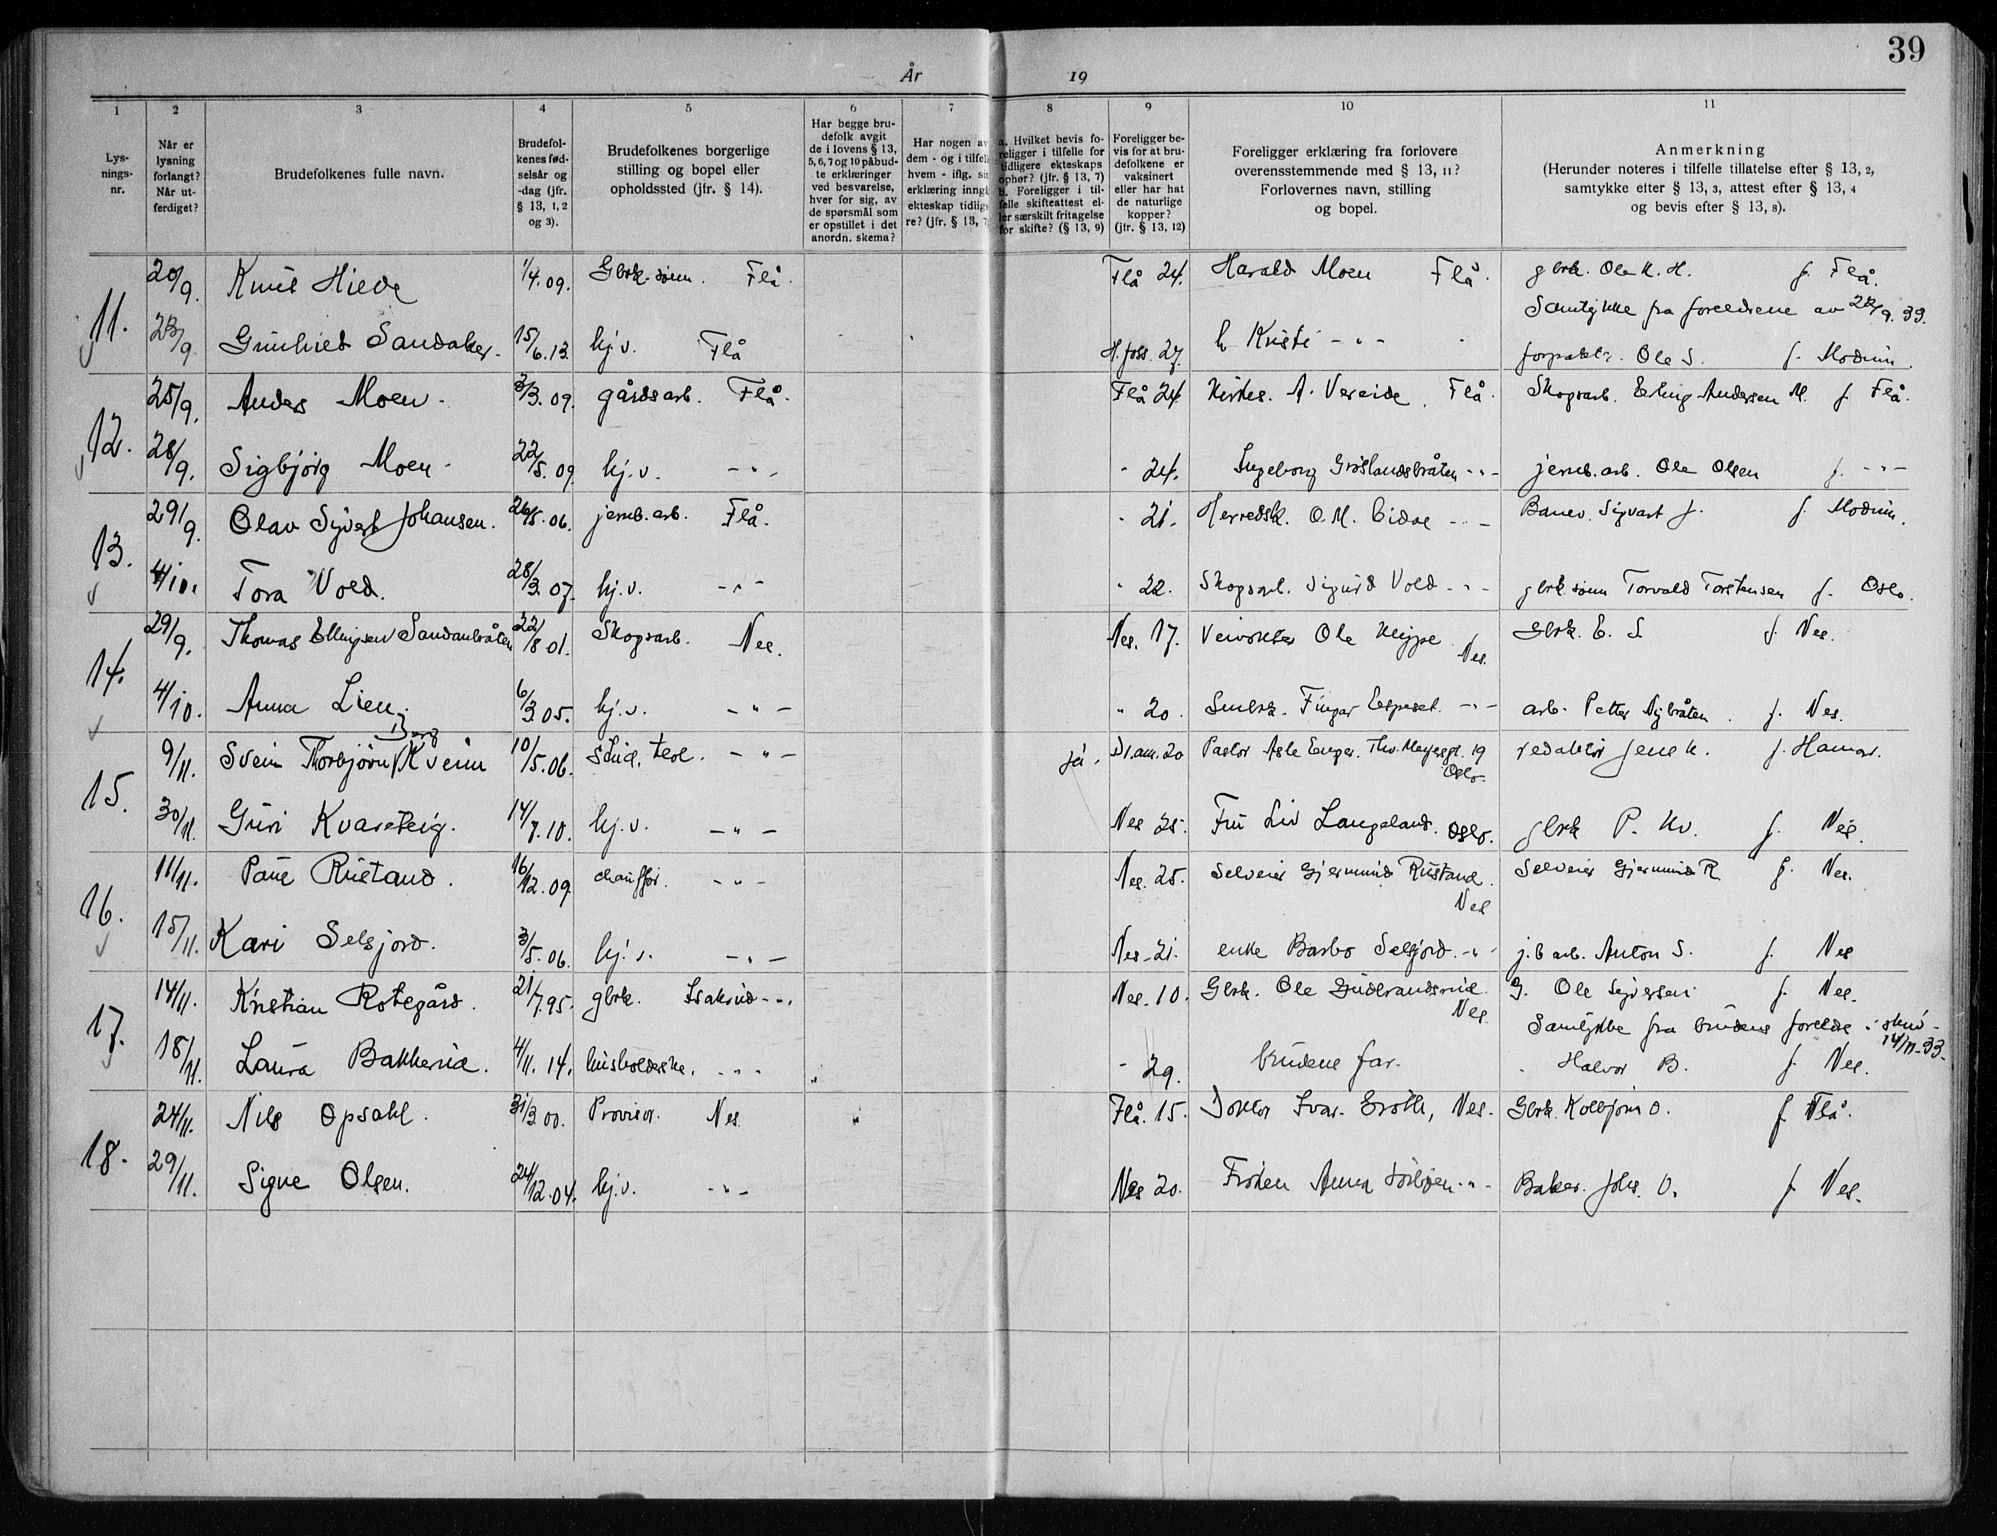 39
År 19
1 2 3 4 5 6 7 8 9 10 11
Lys-
nings-
nr.
Når er
lysning
forlangt?
Når ut-
ferdiget?
Brudefolkenes fulle navn.
Brudefol-
kenes fød-
selsår og
-dag (jfr.
§ 13, 1, 2
og 3).
Brudefolkenes borgerlige
stilling og bopel eller
opholdssted (jfr. § 14).
Har begge bru-
defolk avgit
de i lovens § 13,
5, 6, 7 og 10 påbud-
te erklæringer
ved besvarelse,
hver for sig, av
de spørsmål som
er opstillet i det
anordn. skema?
Har nogen av
dem - og i tilfel
hvem - iflg. sin
erklæring inngå
ekteskap tidlige
re? (jfr. § 13, 7
a. Hvilket bevis fo-
religger i tilfelle for
tidligere ekteskaps
ophør? (jfr. § 13, 7)
b. Foreligger i til-
felle skifteattest el-
ler særskilt fritagelse
for skifte? (§ 13, 9)
Foreligger be-
vis for at bru-
defolkene er
vaksinert
eller har hat
de naturlige
kopper?
(jfr. § 13, 12)
Foreligger erklæring fra forlovere
overensstemmende med § 13, 11?
Forlovernes navn, stilling
og bopel.
Anmerkning
(Herunder noteres i tilfelle tillatelse efter § 13, 2,
samtykke efter § 13, 3, attest efter § 13, 4
og bevis efter § 13, 8).
11. 20/9. Knut Hiede 1/4.09. Gbrk. sønn. Flå. Flå 24. Harald Moen Flå. gbrk. Ole K. H. f. Flå.
Samtykke fra foreldrene av 22/9. 33.
23/9. Gunhild Sandaker. 15/6.13. hj.v. Flå H.foss. 27. Kristi - " - Ole S. f. Modum.
12. 25/9. Anders Moen. 3/3.09. gårdsarb. Flå. Flå 24. Kirkes. A. Vereide. Flå. Skogsarb. Erling Andersen M. f. Flå.
28/9. Sigbjørg Moen. 22/5.09. hj.v. - " - - 24. Ingeborg Grøslandsbråten - " - jernb.arb. Ole Olsen f. - " -
13. 29/9. Olav Syvert Johansen. 26/5.06. jernb.arb. Flå. - 21. Herredsk. O. M. Eidae - " - Banev. Sigvart J. f. Modum.
4/10. Tora Vold. 28/3.07. hj.v. - " - " 22. Skogsarb. Sigurd Vold - " - gbrk.sønn Torvald Torstensen f. Oslo.
14. 29/9. Thomas Ellingsen Sandanbråten 22/8 01. Skogsarb. Nes. Nes. 17. Veivokter Ole Kleppe Nes. Gbrk. E. S. f. Nes.
4/10. Anna Lien. 6/3.05. hj.v. - " - " 20. Smbrk. Finger Espeset. - " - arb. Petter Nybråten. f. Nes.
Berg
15. 9/11. Svein Thorbjørn Kveim 10/5.06. stud. teol. - " - ja. Dr.am. 20 Pastor Asle Enger. Thv. Meyersgt. 19
Oslo. redaktør Jens K. f. Hamar.
30/11. Guri Kvarsteig. 14/7.10. hj.v. - " - Nes 25. Fru Liv Langeland. Oslo. gbrk P. Kv. f. Nes
16. 11/11. Paul Rustand. 16/12.09. chauffør. - " - Nes. 25. Selveier Gjermund Rustand.
Nes Selveier Gjermund R. f. Nes.
15/11. Kari Selsjord. 3/5.06. hj.v. - " - Nes. 21. enke Barbo Selsjord. - " - j.b arb. Anton S. f. Nes
17. 14/11. Kristian Rotegård. 21/7.95. gbrk. Isakrud - " - Nes. 10. Gbrk. Ole Gudbrandsrud
Nes. G. Ole Syversen f. Nes.
Samtykke fra brudens forelde
14/11-33.
18/11. Laura Bakkerud. 4/11.14. husholderske. - " - - 29. brudens far. Halvor B. f. Nes.
18. 24/11. Nils Opsahl. 31/3.00. Provisor. Nes. Flå. 15. Doktor Ivar Groth, Nes. Gbrk. Kolbjørn O. f. Flå.
29/11. Signe Olsen. 24/12.04. hj.v. - " - Nes 20. Frøken Anna - " - Baker. Johs. O. f. Nes.